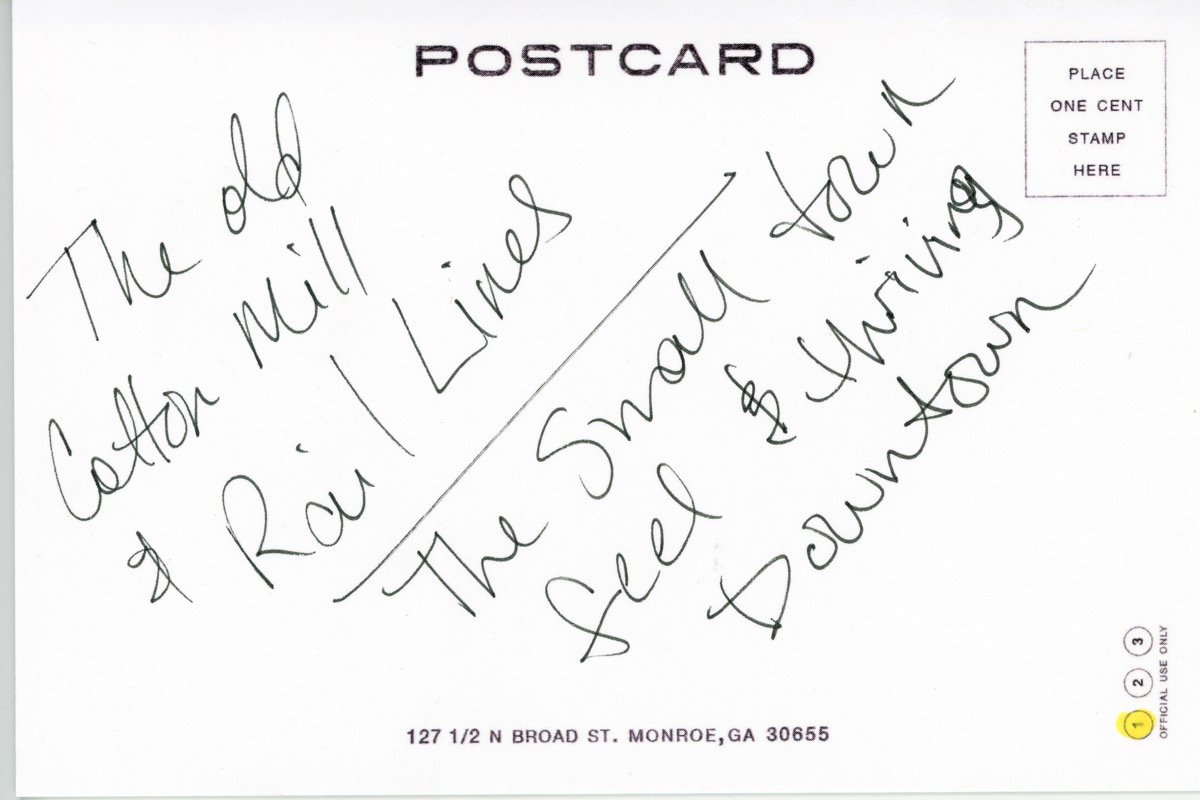 POSTCARD
PLACE
ONE CENT
STAMP
HERE
The old
Cotton Mill
& Rail Lines
The Small town
feel & thriving
Downtown
127 1/2 N BROAD ST. MONROE, GA 30655
1 2 3
OFFICIAL USE ONLY